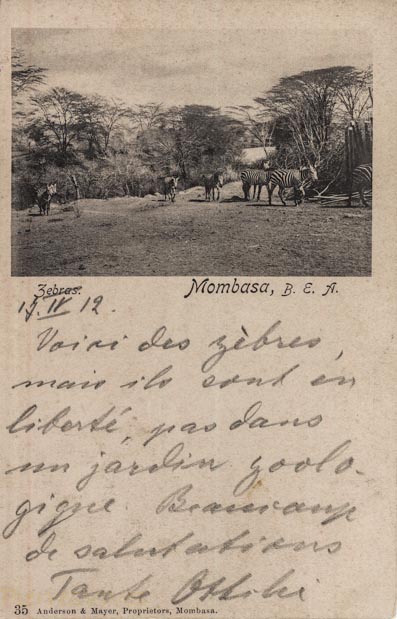 Zebras.
Mombasa, B. E. A.
17. IV 12.
Voici des zèbres,
mais ils sont en
liberté, pas dans
un jardin zoolo-
gique. Beaucoup
de salutations
Tante Ottilie
35 Anderson & Mayer, Proprietors, Mombasa.